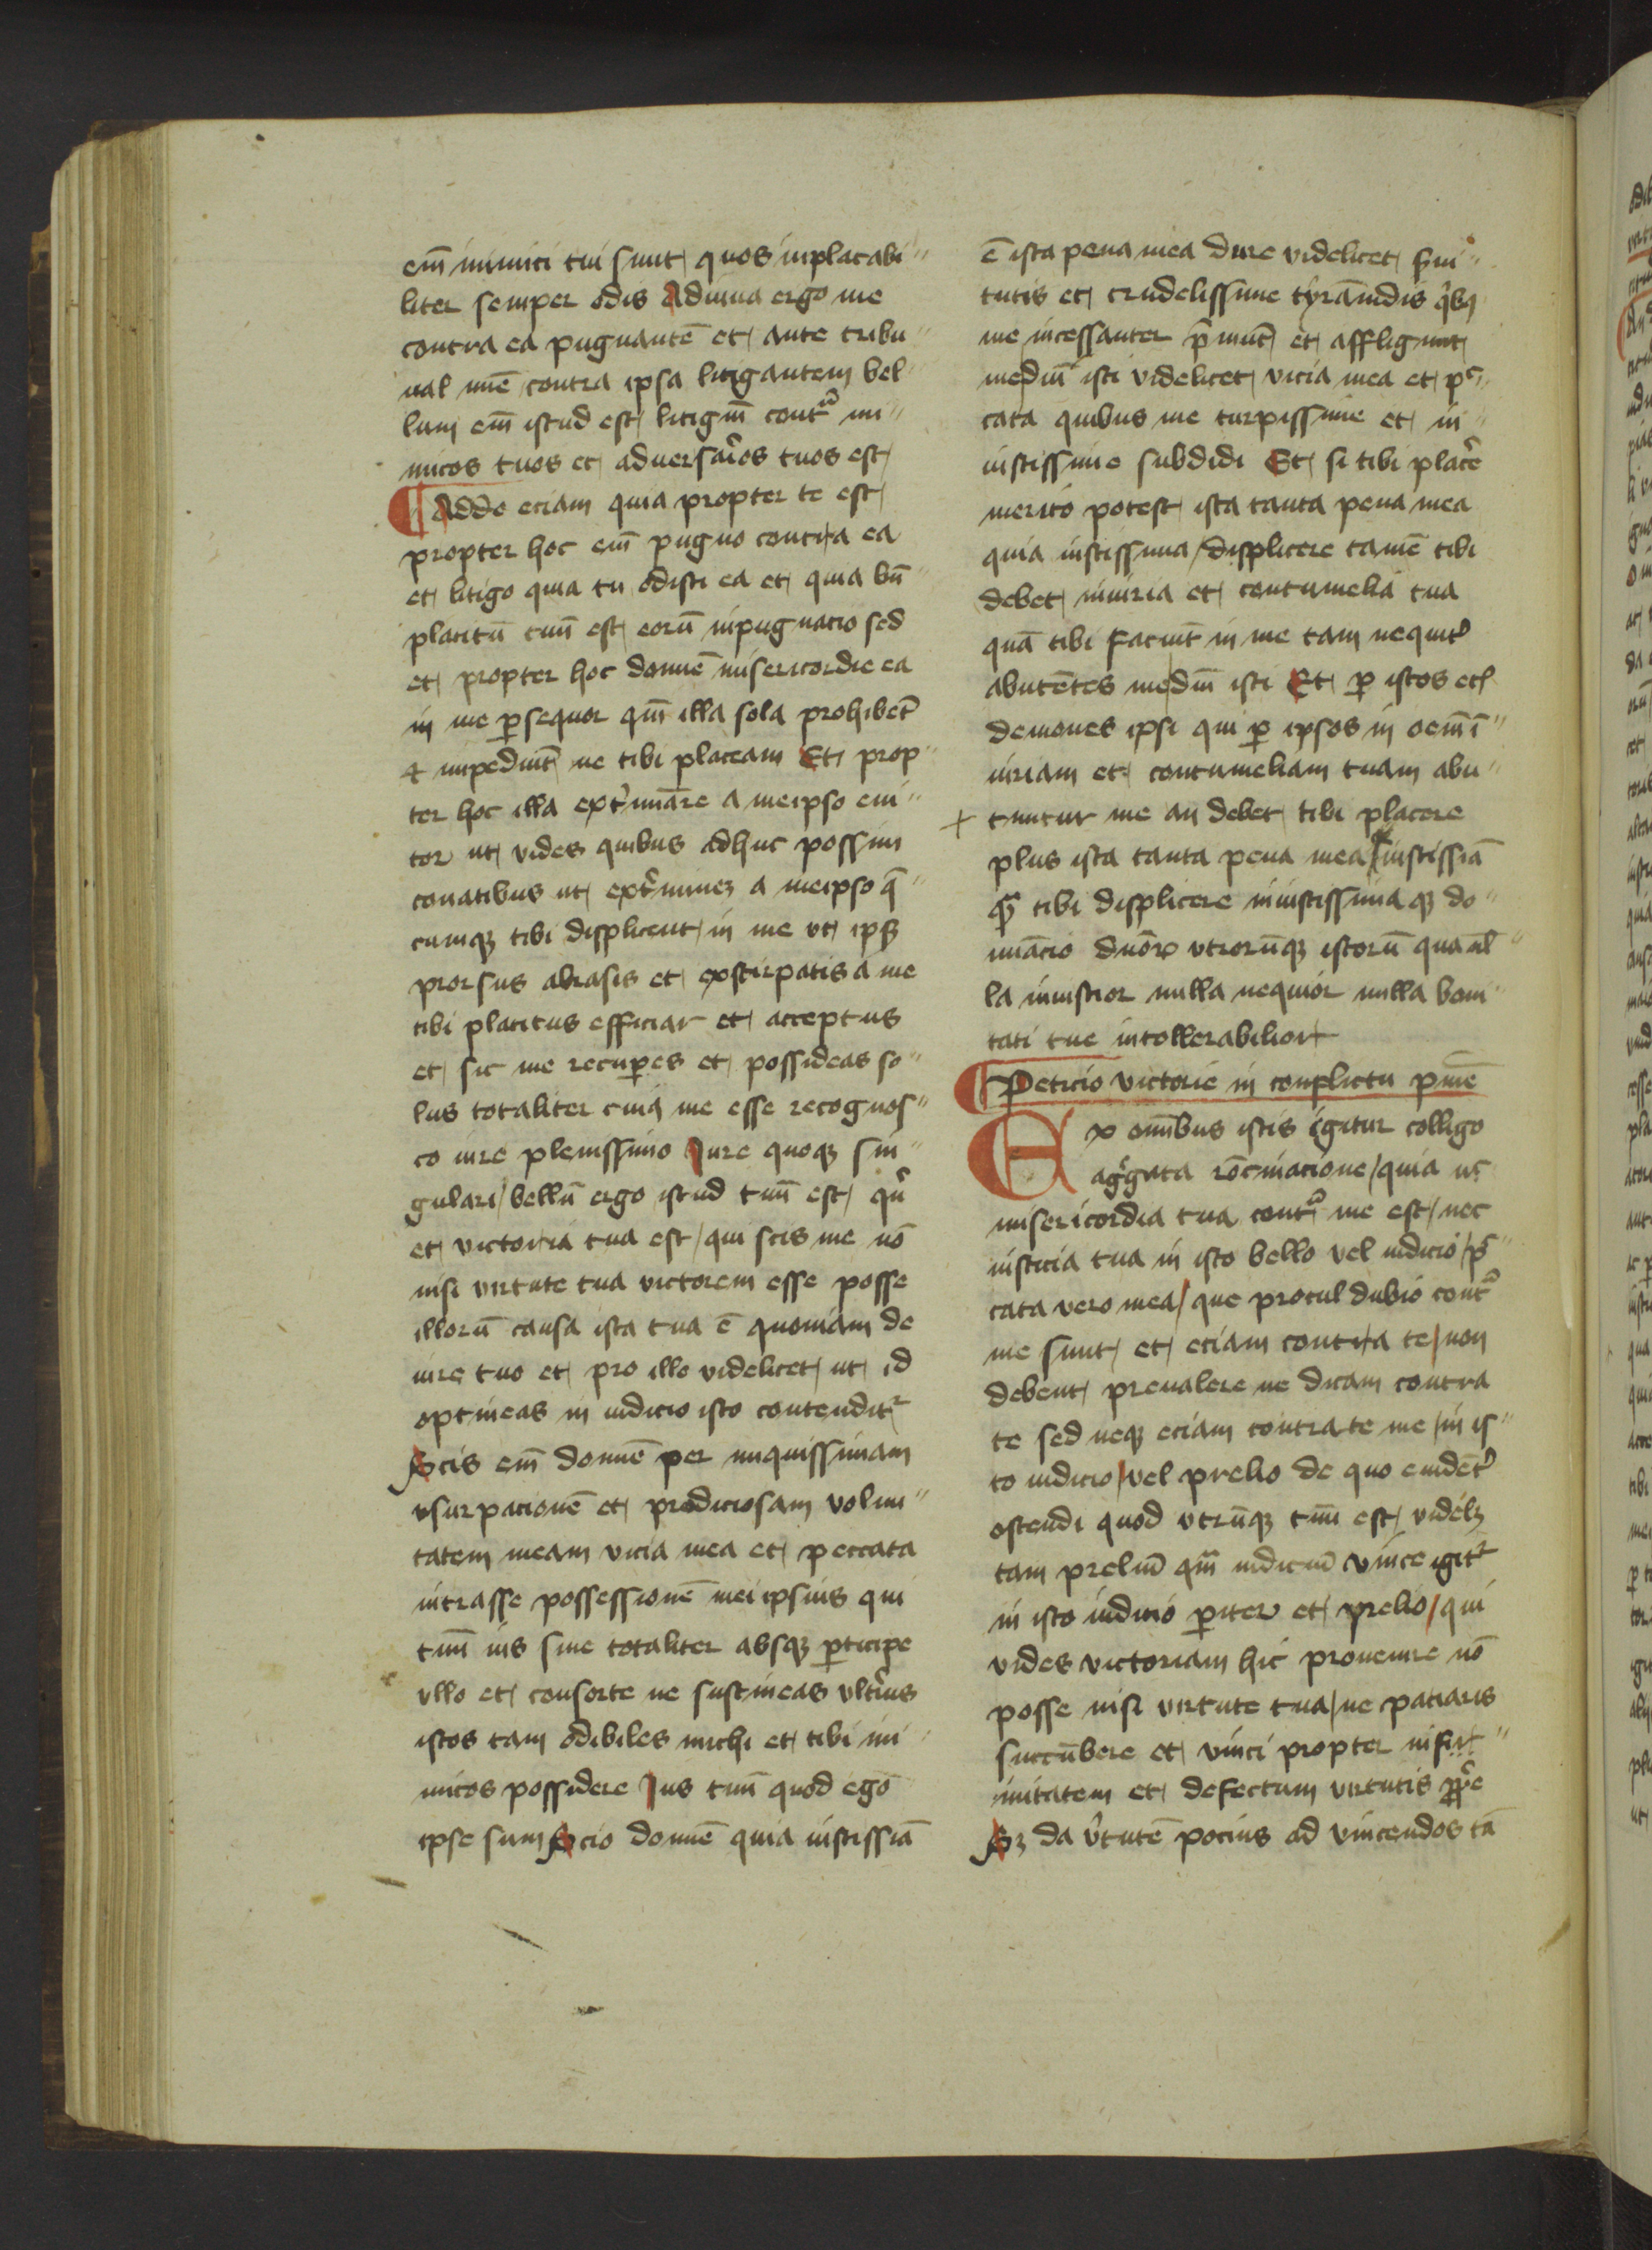 em̄ inimici tui sunt quos inplacabi
liter semper odis Adiuua ergo me
contra ea pugnantē et ante tribu
nal tuū contra ipsa litigantem bel
lum em̄ istud est litigiū contͣ ini
micos tuos et aduersaͬios tuos est
¶ Adde eciam quia propter te est
propter hoc em̄ pugno contra ea
et litigo quia tu odisti ea et quia bn̄
placitū tuū est eorū inpugnacio sed
et propter hoc domiē misericordie ea
in me ꝑsequor qm̄ illa sola prohibēt
⁊ impediūt ne tibi placeam Et prop
ter hoc illa ext̾minare a meipso eni
tor ut vides quibus adhuc possim
conatibus ut ext̾minēꝫ a meipso q̄
cumqꝫ tibi displicent in me vt ipsis
prorsus abrasis et exstirpatis a me
tibi placitus efficiar et acceptus
et sic me recuꝑes et possideas so
lus totaliter cuiꝰ me esse recognos
co iure plenissimo Iure quoqꝫ sin
gulari / bellū ergo istud tuū est / qr̄
et victoria tua est / qui scis me nō
nisi virtute tua victorem esse posse
illorū causa ista tua ē quoniam de
iure tuo et pro illo videlicet ut id
optineas in iudicio isto contenditʳ
Scis em̄ domiē per iniquissimam
vsurpacionē et prodiciosam volun
tatem meam vicia mea et peccata
intrasse possessionē mei ipsius qui
tuū ius sine totaliter absqꝫ ꝑticipe
vllo et consorte ne sustineas vlt̾ius
istos tam odibiles michi et tibi ini
micos possidere Ius tuū quod ego
ipse sum Scio domiē quia iustissīa
ē ista pena mea dure videlicet s̾ui
tutis et crudelissime tyrānidis qͥbꝫ
me incessanter p̄munt et affligunt
mediū isti videlicet vicia mea et pc̄
cata quibus me turpissime et in
iustissime subdidi Et si tibi plac̾e
merito potest ista tanta pena mea
quia iustissima / displicere tamē tibi
debet iniuria et contumelia tua
quā tibi faciūt in me tam nequit̾
abutētes mediū isti Et ꝑ istos ecꝉ
demones ipsi qui ꝑ ipsos in oem̄ ī
iuriam et contumeliam tuam abu
+ tuntur me an debet tibi placere
plus ista tanta pena mea iustissīa
qͣ tibi displicere iniustissima qꝫ do
minacio duoꝝ vtrorūqꝫ istorū qua nł
la iniustior nulla nequior nulla boni
tati tue intollerabilior
¶ Peticio victorie in conflictu pūie
Ex omībus istis igitur colligo
agͥgata rōcinacione / quia nͨ
misericordia tua contͣ me est / nec
iusticia tua in isto bello vel iudicio / pc̄
cata vero mea / que procul dubio contͣ
me sunt et eciam contra te / non
debent preualere ne dicam contra
te sed neqꝫ eciam contra te me / in is
to iudicio / vel prelio de quo euidēt̾
ostendi quod vtrūqꝫ tuū est / videlꝫ
tam preliū qm̄ iudiciū vince igitʳ
in isto iudicio ꝑiter et prelio / qui
vides victoriam hic prouenire nō
posse nisi virtute tua / ne paciaris
succūbere et vinci propter infir
mitatem et defectum virtutis ꝓp̾e
Sꝫ da v̾tutē pocius ad vincendos tā